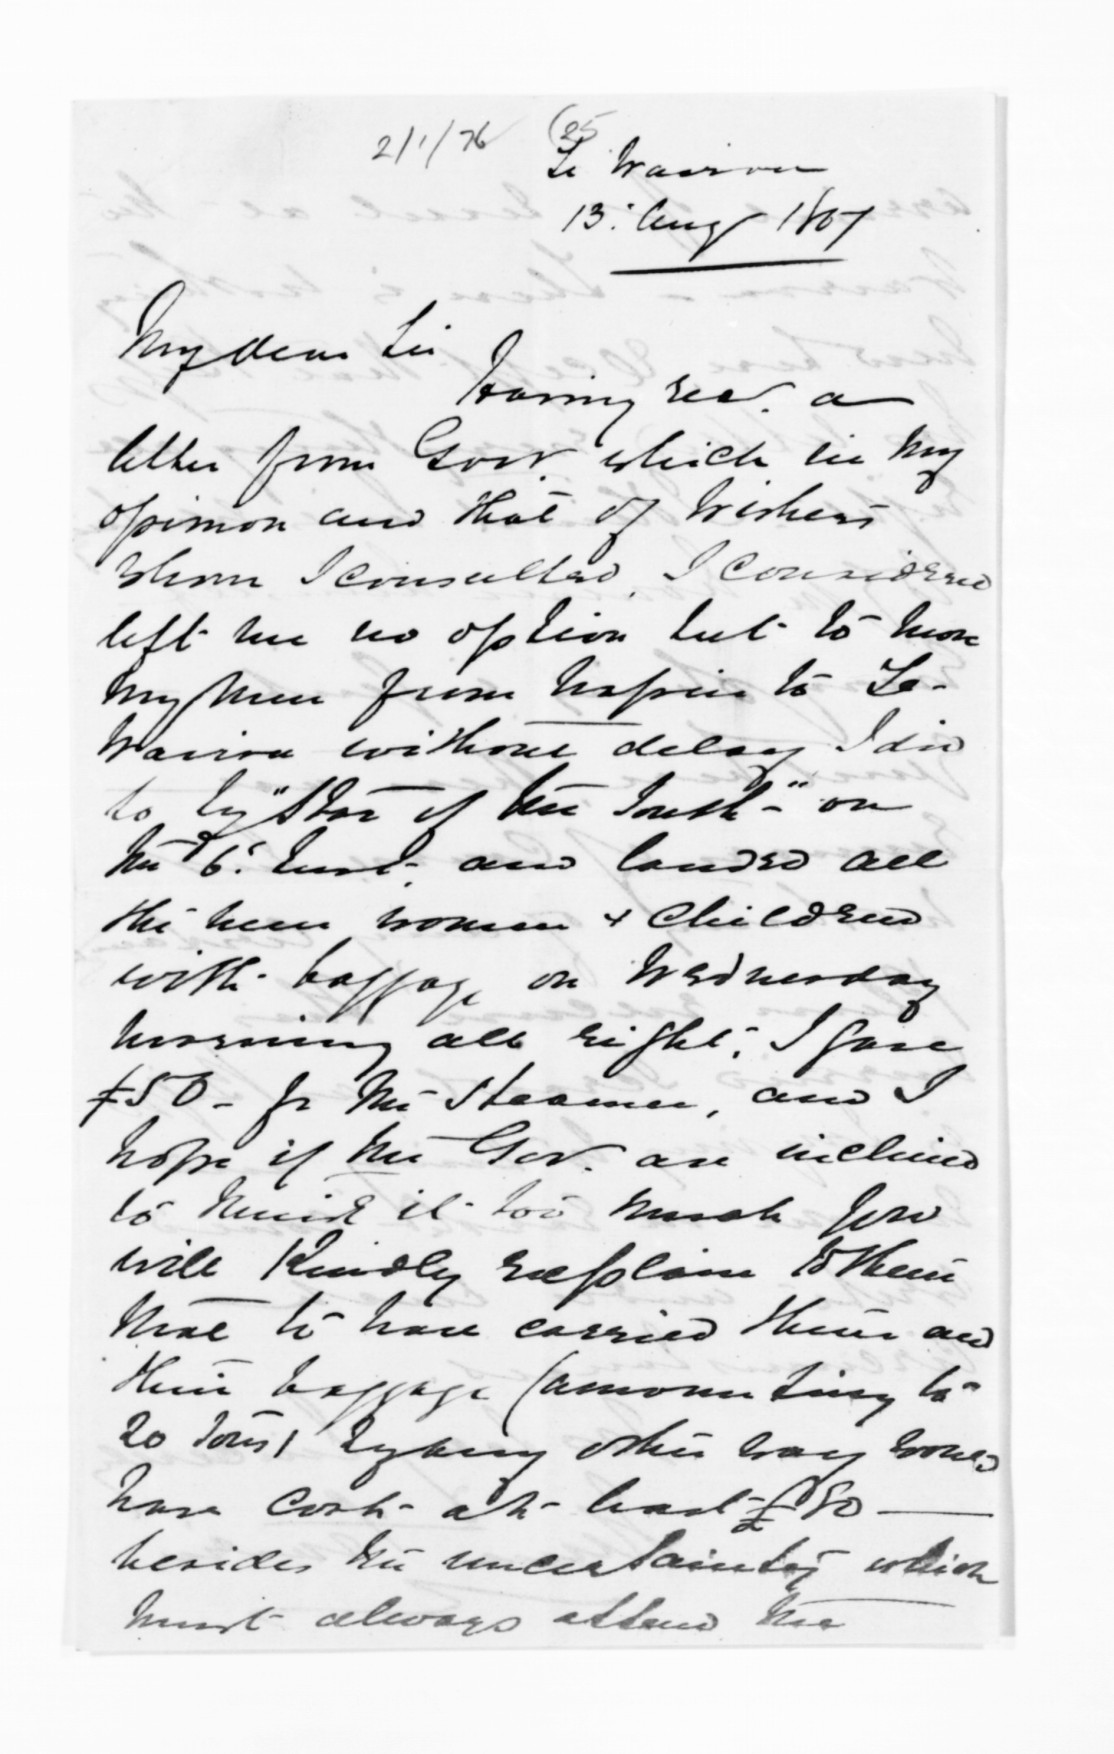 2/1/76 (25
Te Wairoa
13. Aug 1867
My dear Sir
Having recd. a
letter from Govt. which in my
opinion and that of Wishers
whom I consulted, I considered
left me no option but to move
my men from Napier to Te-
Wairoa without delay I did
so by "Star of the South" on
the 6. Inst. and landed all
the men women & children
with baggage on Wednesday
morning all right. I gave
£50- for the Steamer, and I
hope if the Gov. are inclined
to think it too much you
will Kindly explain to them
that to have carried them and
their baggage (amounting to
20 tons) by any other way would
have cost at least £80
besides the uncertainty which
must always attend the